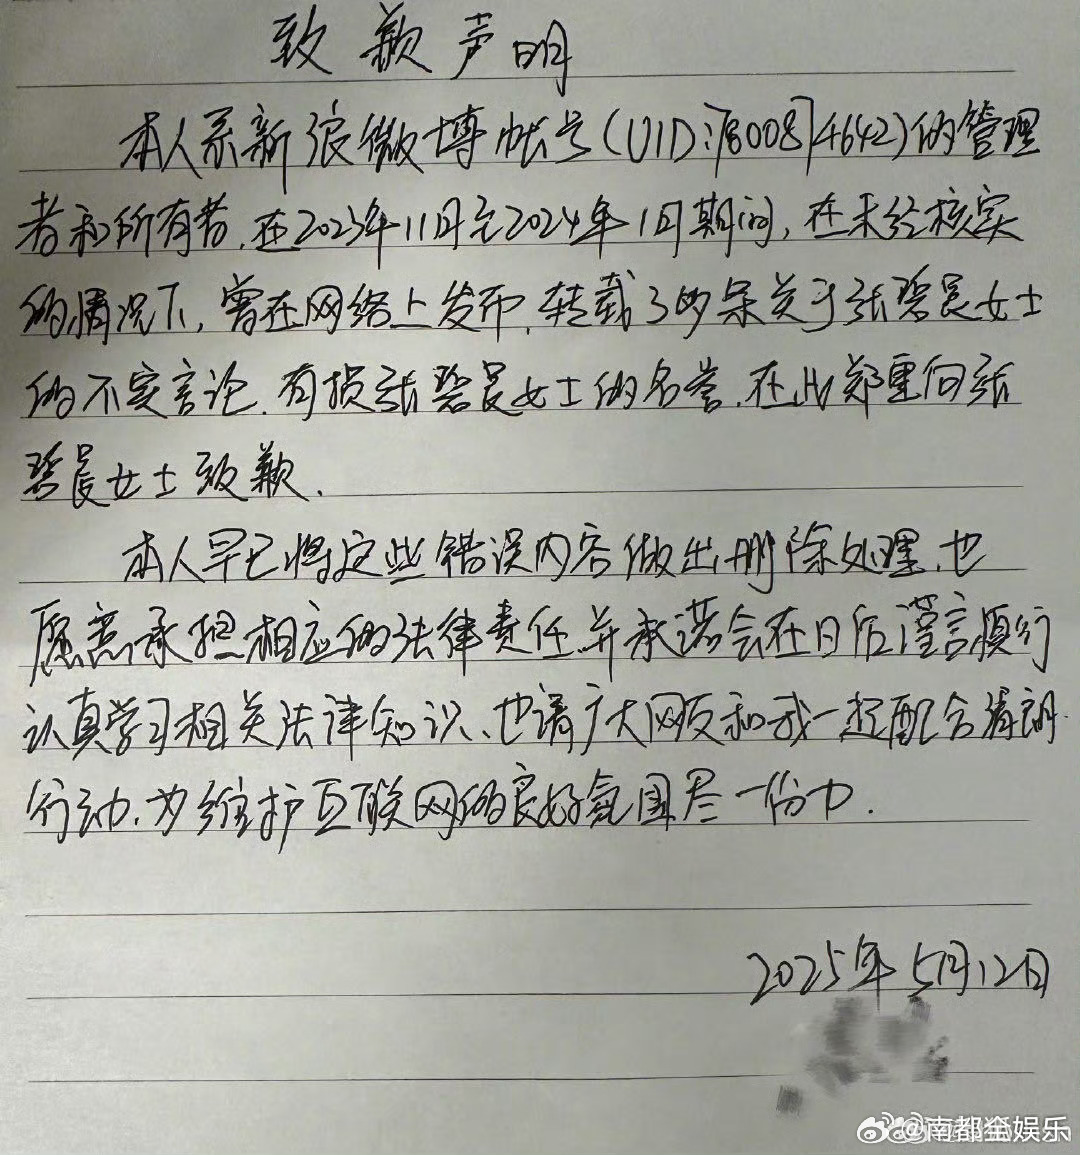 致歉声明
本人系新浪微博帐号(UID:7800874642)的管理
者和所有者,在2023年11月至2024年1月期间,在未经核实
的情况下,曾在网络上发布,转载了多条关于张碧晨女士
的不实言论,有损张碧晨女士的名誉,在此郑重向张
碧晨女士致歉、
本人早已将这些错误内容做出删除处理,也
愿意承担相应的法律责任,并承诺会在日后谨言慎行
认真学习相关法律知识、也请广大网友和我一起配合清朗
行动,为维护互联网的良好氛围尽一份力.
2025年5月12日
@南都全娱乐